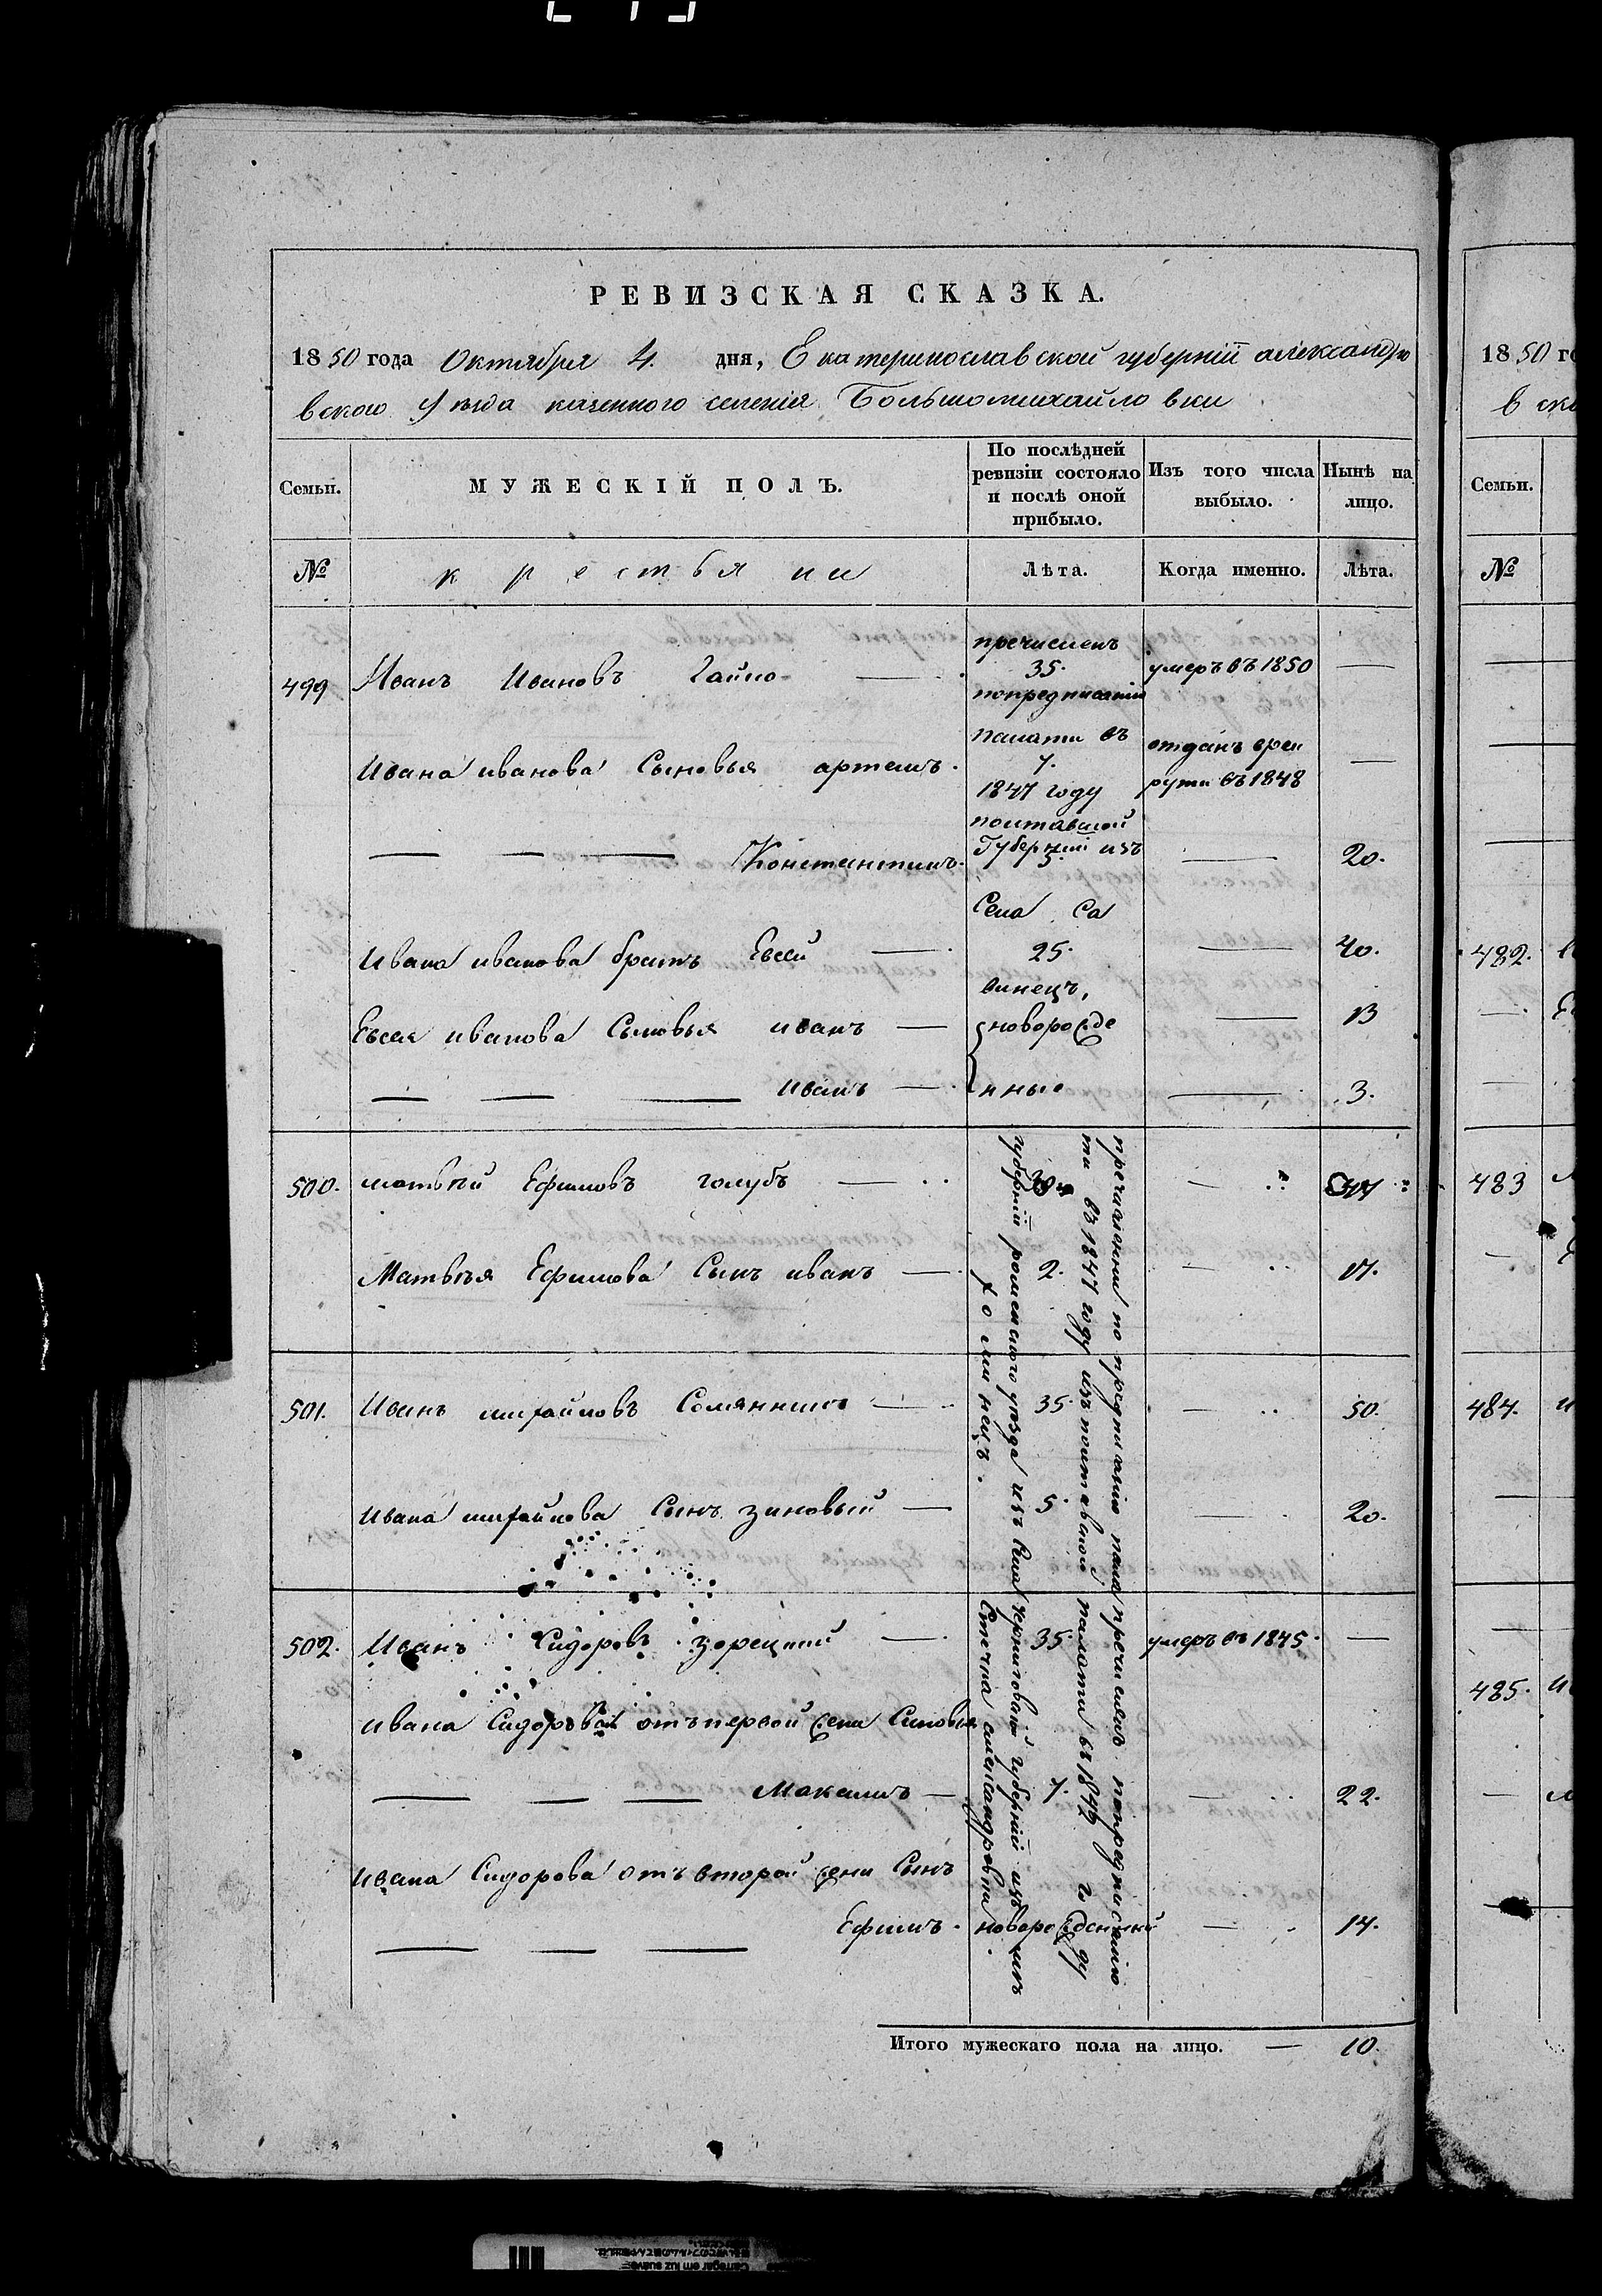 РЕВИЗСКАЯ СКАЗКА.
1850 года Октября 4. дня, Екатеринославской губерніи александро
вскою Уѣзда казенного селенія Большомихайловки
Семьи. МУЖЕСКІЙ ПОЛЪ. По послѣдней ревизіи состояло и послѣ оной прибыло. Изъ того числа выбыло. Нынѣ на лицо.
№ крестьяни Лѣта. Когда именно. Лѣта.
пречисленъ
499 Иванъ Ивановъ 35. умеръ въ 1850 —
попредписанію
палати въ
Ивана иванова Сыновья артемъ. 7. отданъ врек
рути въ 1848 —
1847 году
полтавской
Губерніи изъ
— — — Константинъ. 5. — 20.
Села Са
Ивана иванова братъ Евсей — 25. — 40.
винецъ,
Евсея иванова Сыновья иванъ — новорожде — 13
— — — иванъ — нные — 3.
500. матвѣй Ефимовъ голубъ — —
Матвѣя Ефимова Сынъ иванъ — 2. — 17.
501. Иванъ михайловъ — 35. — 50.
Ивана михайлова Сынъ зиновый — 5. — 20.
пречисленни по предписанію пала
ти въ 1847 году изъ полтавской
губерніи роменского уѣзда изъ села
хоминецъ.
502. Иванъ Сидоровъ зорецкий — 35. умеръ въ 1845. —
Ивана Сидорова отъ первой жени Синовья
— — — Максимъ — 7. — 22.
Ивана Сидорова отъ второй жени Сынъ
— — — Ефимъ. новорожденный — 14.
пречисленъ попредписанію
палати въ 1842 году
Черниговской губерніи изъ
александровки.
Итого мужескаго пола на лицо. — 10.
1850 го
в ско
Семьи.
№
482.
483
484.
485.